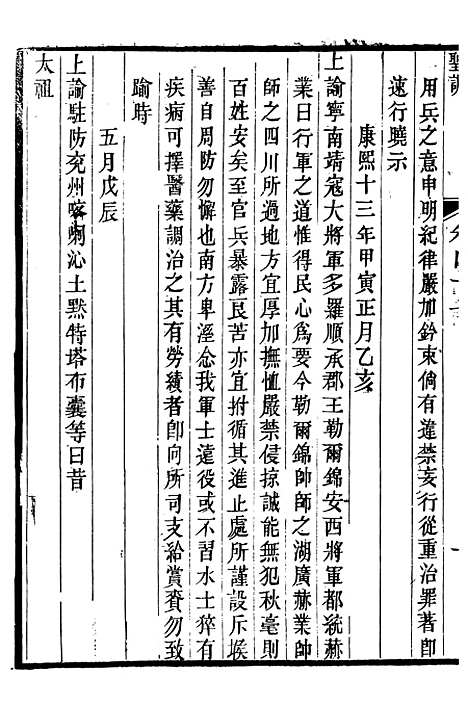 聖訓
用兵之意申明紀律嚴加鈐束倘有違禁妄行從重治罪著卽
速行曉示
康熙十三年甲寅正月乙亥
上諭寧南靖寇大將軍多羅順承郡王勒爾錦安西將軍都統赫
業曰行軍之道惟得民心爲要今勒爾錦帥師之湖廣赫業帥
師之四川所過地方宜厚加撫恤嚴禁侵掠誠能無犯秋毫則
百姓安矣至官兵暴露艮苦亦宜拊循其進止處所謹設斥堠
善自周防勿懈也南方卑溼念我軍士遠役或不習水土猝有
疾病可擇醫藥調治之其有勞績者卽向所司支給賞賚勿致
踰時
五月戊辰
上諭駐防兗州喀喇沁土默特塔布囊等曰昔
太祖